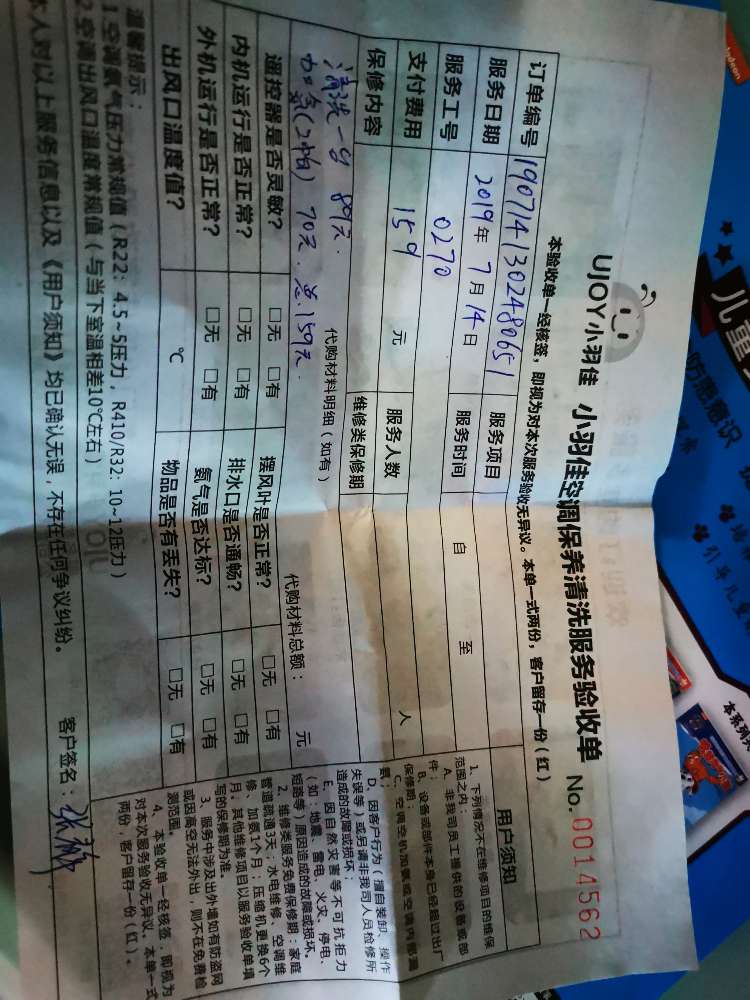 UJOY小羽佳 小羽佳空调保养清洗服务验收单 No. 0014562
本验收单一经核签，即视为对本次服务验收无异议。本单一式两份，客户留存一份（红）
订单编号 1907141302480651 服务项目
服务日期 2019年7月14日 服务时间 自 至
服务工号 0270
支付费用 159 元 服务人数 人
保修内容 维修类保修期
清洗一台 89元. 代购材料明细（如有）
加氨(2个) 70元. 总.159元. 代购材料总额： 元
遥控器是否灵敏？ □无 □有 摆风叶是否正常？ □无 □有
内机运行是否正常？ □无 □有 排水口是否通畅？ □无 □有
外机运行是否正常？ □无 □有 氨气是否达标？ □无 □有
出风口温度值？ ℃ 物品是否有丢失？ □无 □有
用户须知
1、下列情况不在维修项目的维保
范围之内：
A、非我司员工提供的设备或部
件；
B、设备或部件本身已经超过出厂
保修期；
C、空调空机加氨或空调内部漏
氨；
D、因客户行为（擅自装卸、操作
失误等）或另请非我司人员检修所
造成的故障或损坏；
E、因自然灾害等不可抗拒力
（如：地震、雷电、火灾、停电、
短路等）原因造成的故障或损坏。
2、维修类服务免费保修期：家庭
管道疏通3天；水电维修、空调维
修、加氨1个月；压缩机更换6个
月，其他维修项目以服务验收单填
写的保修期为准。
3、服务中涉及出外墙如有防盗网
或因高空无法外出，则不在免费检
测范围。
4、本验收单一经核签，即视为
对本次服务验收无异议，本单一式
两份，客户留存一份（红）。
温馨提示：
1空调氨气压力常规值（R22：4.5~5压力，R410/R32：10~12压力）
2空调出风口温度常规值（与当下室温相差10℃左右）
本人对以上服务信息以及《用户须知》均已确认无误，不存在任何争议纠纷。 客户签名：
儿童
防患意识
引导儿童
本系列